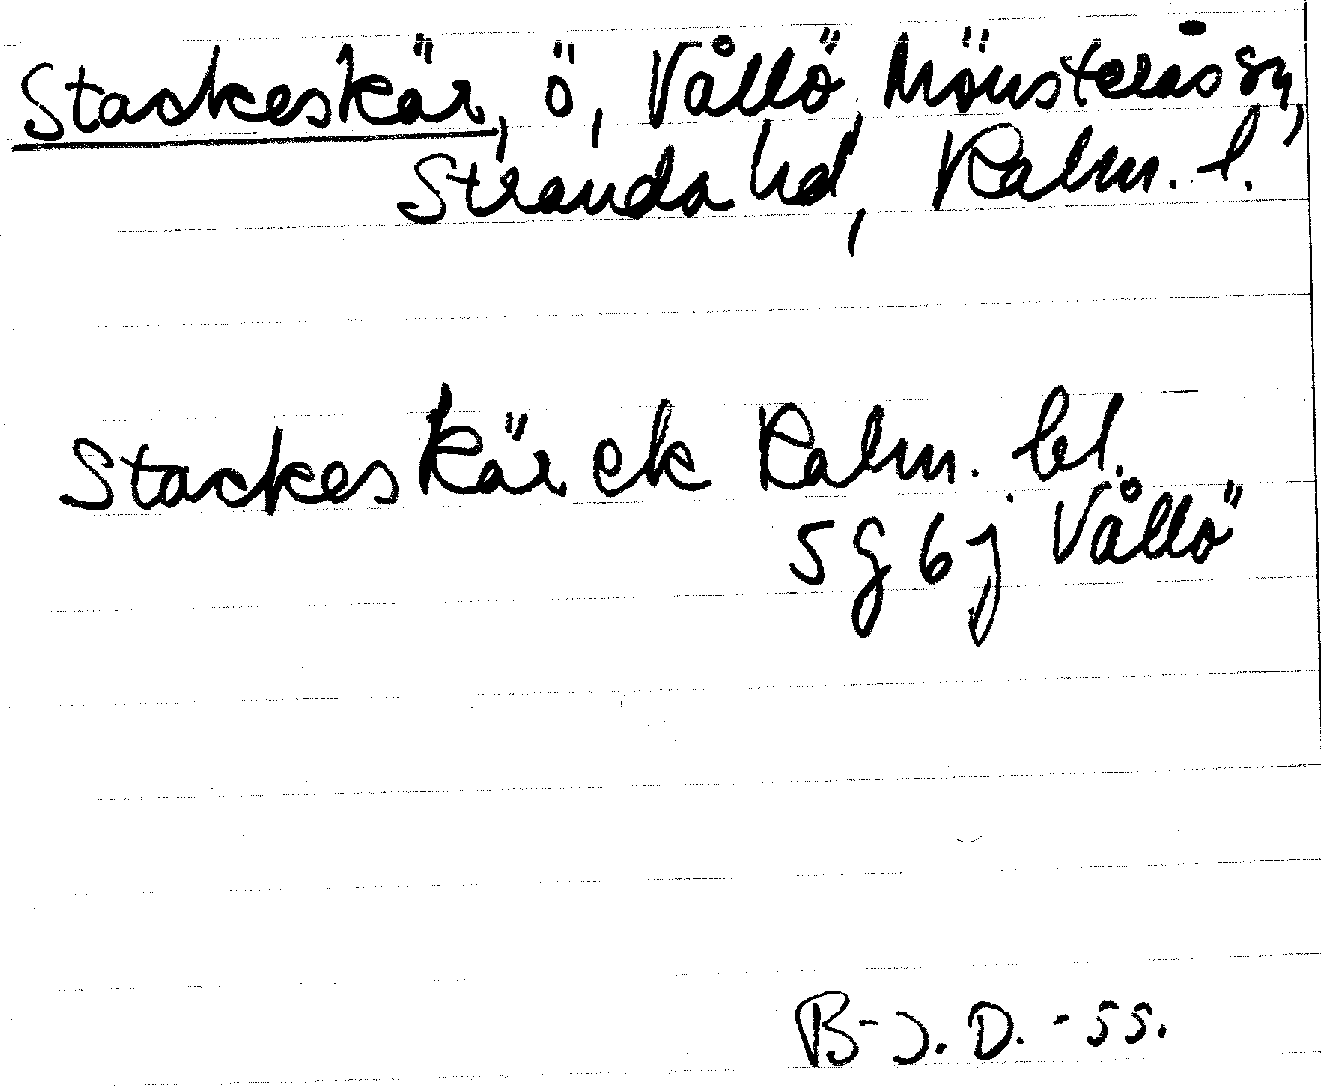 Stackeskär, ö, Vållö, Mönsterås sn,
Stranda hd, Kalm. l.
Stackeskär ek Kalm. bl.
5 g 6 j Vållö
B-J. D. -55.